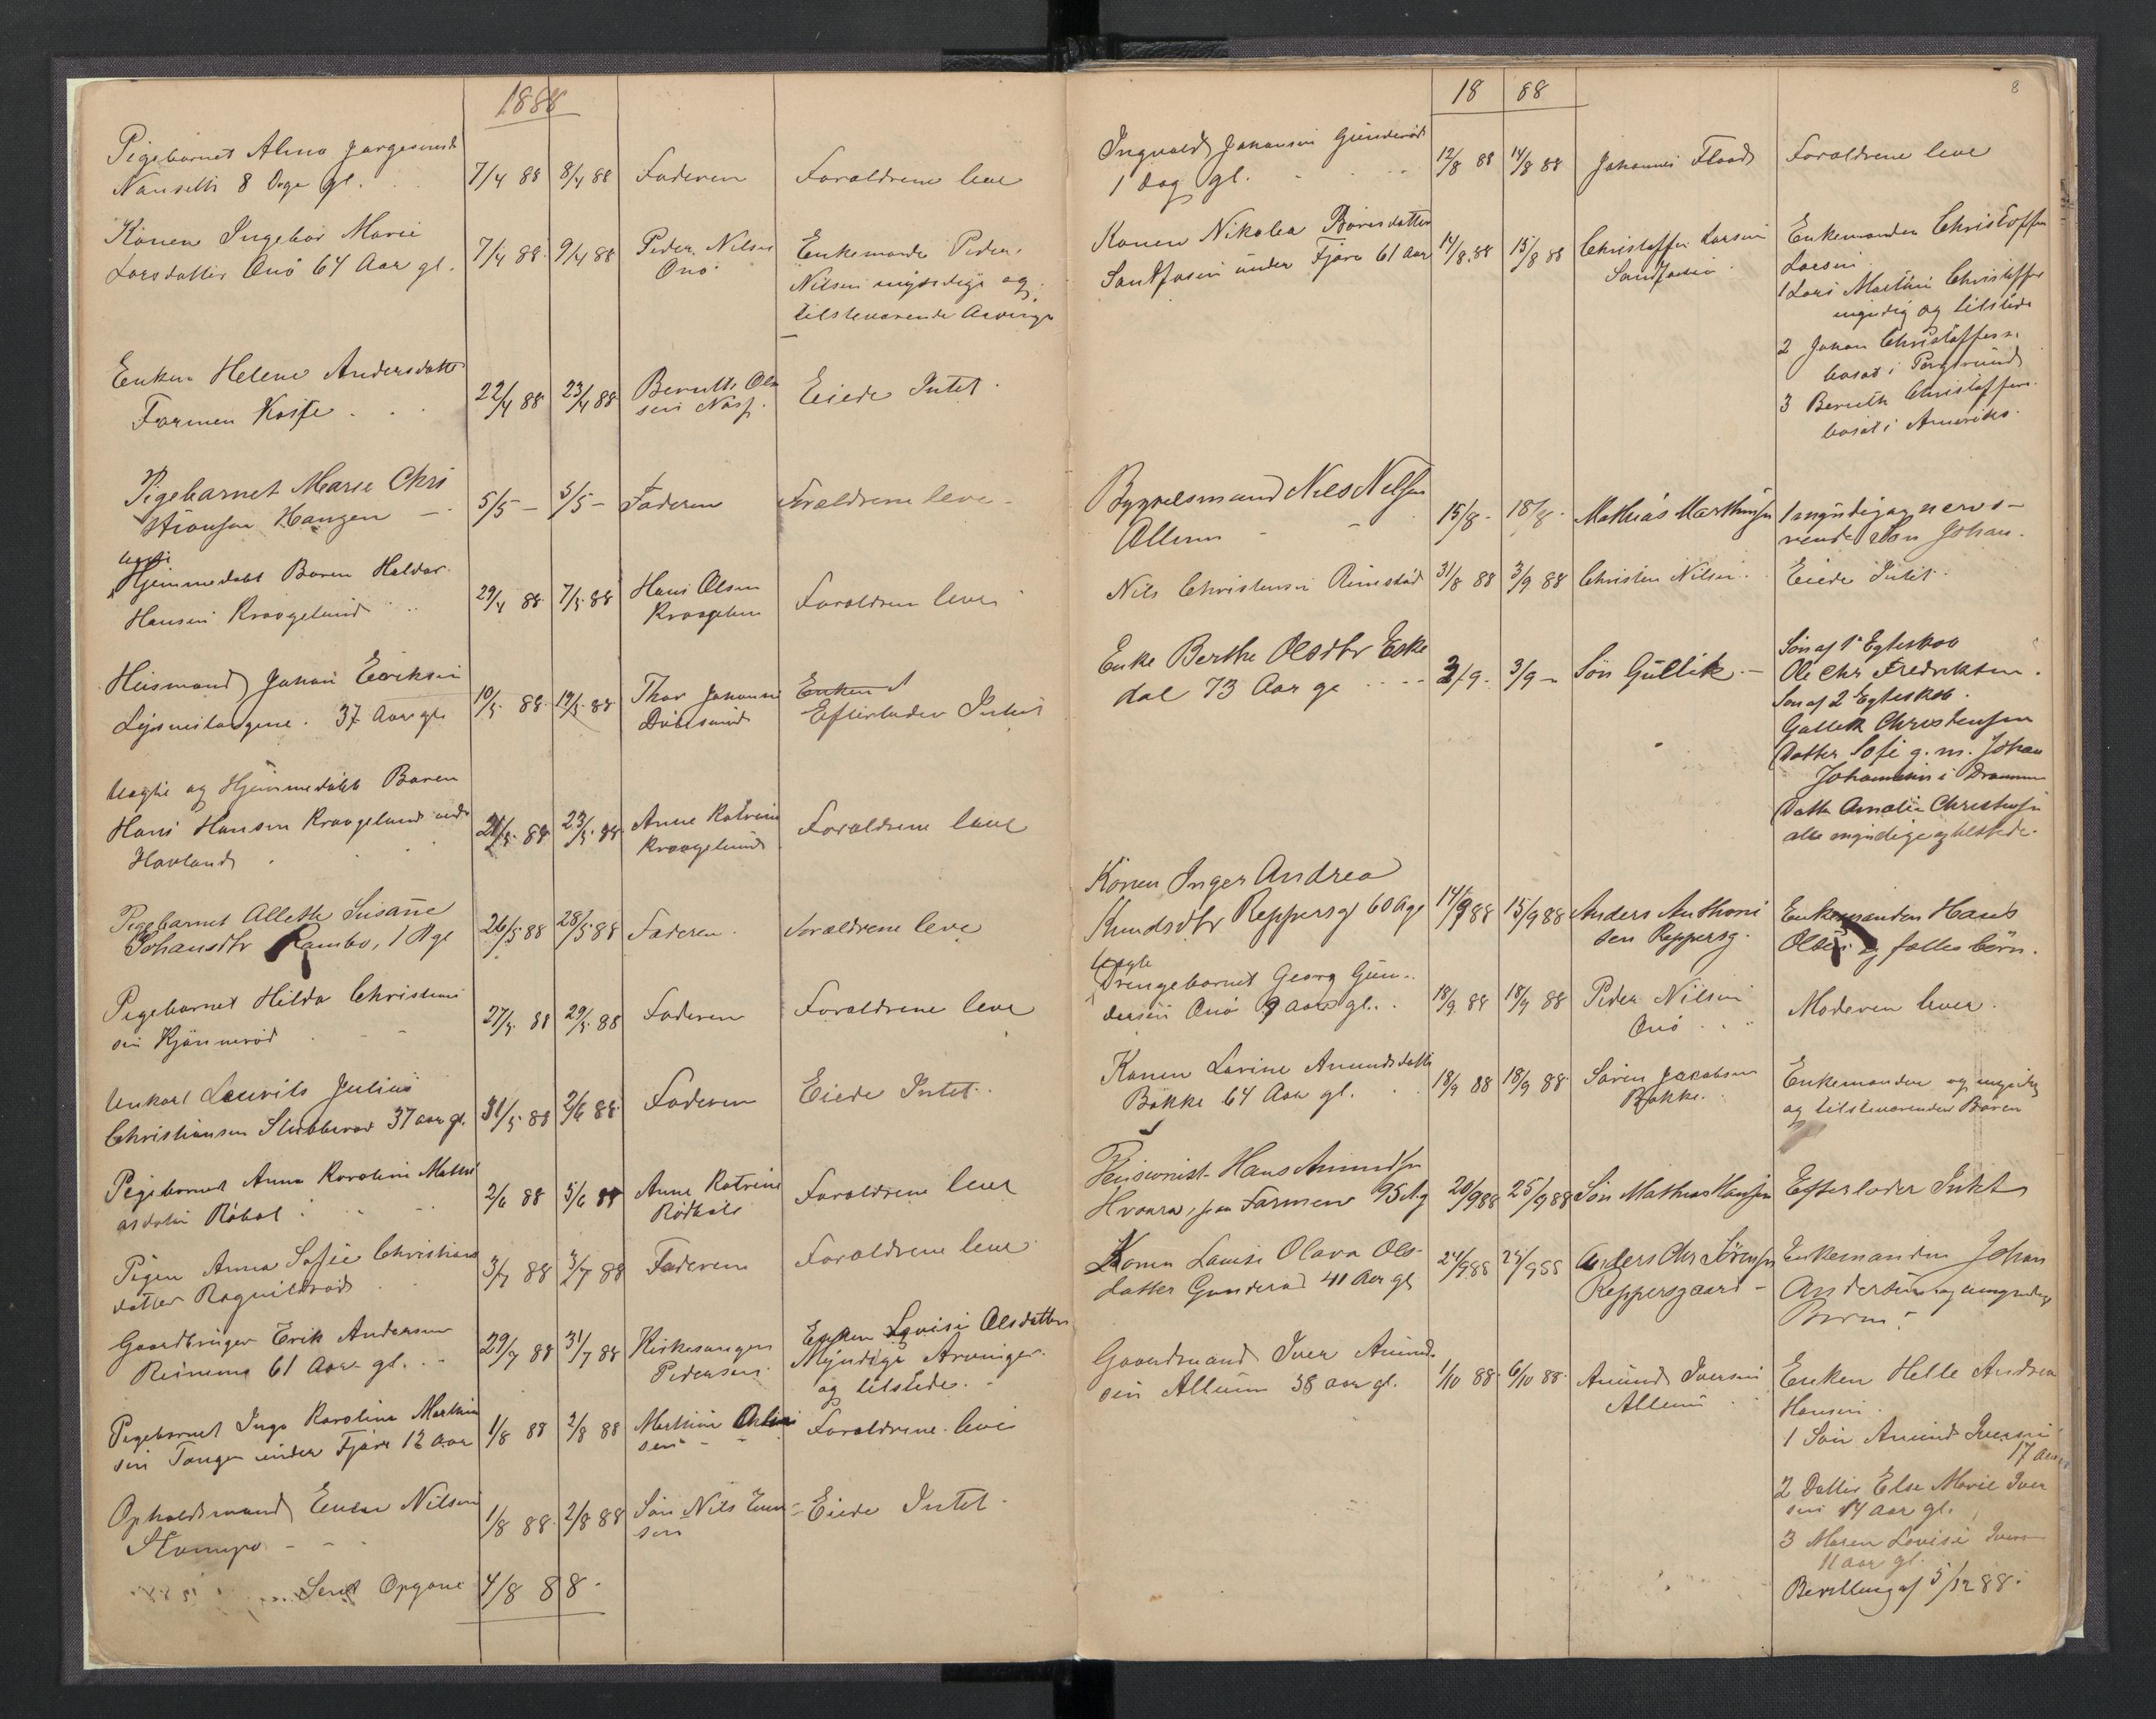 1888
Pigebarnet Alma Jørgensdt
Nanseth 8 Dage gl. 7/4 88 8/4 88 Faderen Forældrene leve
Konen Ingebor Marie
Larsdatter Onø 64 Aar gl. 7/4 88 9/4 88 Peder Nilsen Onø
Enkemande Peder
Nilsen myndige og
tilsteværende Arvinger
Enken Helene Andersdatt
Farmen 22/4 88 23/4 88 Bernth Olsen Eiede Intet
Pigebarnet Marie Chri
stiansen Haugen 5/5 - 5/5 - Faderen Forældrene leve
uægte
Hjemmedøbt Baren Haldor
Hansen Kraagelund 29/4 88 7/5 88 Hans Olsen
Kraagelun Forældren lever
Huismand Johan Eeriksen
37 Aar gl. 10/5 88 19/5 88 Thor Johanne
Enken
Efterlader Intet
Uægte og Hjemmedøbt Baren
Hans Hansen Kraagelund under
Havland 21/5 88 23/5 88 Anne Katrine
Kraagelund Forældrene leve
Pigebarnet Allette Susanne
Johansdtr Rambo, 1 D gl 26/5 88 28/5 88 Faderen Forældrene leve
Pigebarnet Hilda Christian
sen Kjønnerød 27/5 88 29/5 88 Faderen Forældrene leve
Unkarl Laurits Julius
Christiansen Stubberød 37 aar gl. 31/5 88 2/6 88 Faderen Eiede Intet
Pigebarnet Anna Karoline Mathi
asdatter Røbøl 2/6 88 5/6 88 Anne Katrine
Rødbøl Forældrene leve
Pigen Anna Sofie Christians
datter Ragnildrød 3/7 88 3/7 88 Faderen Forældrene leve
Gaardbruger Erik Andersen
61 Aar gl. 29/7 88 31/7 88 Kirkesanger
Pedersen
Enken Lovise Olsdatter
Myndige Arvinger
og tilstede.
Pigebarnet Inga Karoline Marthin
sen Tangen under Fjære 12 Aar 1/8 88 2/8 88 Marthin
sen Forældrene leve
Opholdsmand Enar Nilsen
1/8 88 2/8 88 Søn Nils Enar
sen Eiede Intet
Send Opgave 4/8 88
8
18 88
Ingvald Johansen Gunderød
1 dag gl. 12/8 88 14/8 88 Johannes Flaad Forældrene leve
Konen Nikolea Børresdatter
under Fjære 61 Aar 14/8 88 15/8 88 Christoffer Larsen
Enkemanden Christoffer
Larsen
1 Lars Martin Christoffer
myndig og tilstede
2 Johan Christoffersen
bosat i Porsgrund
3 Bernth Christoffersen
bosat i Amerika
Bygselsmand Nils Nilsen
Allum 15/8 - 18/8 - Mathias Marthinsen 1 myndig og nærvæ-
rende Søn Johan.
Nils Christensen Rimstad 31/8 88 3/9 88 Christen Nilsen Eiede Intet
Enke Berthe Olsdtr Eske
dal 73 Aar gl 2/9 - 3/9 - Søn Gullik
Søn af 1ste Egteskab
Ole Chr Fredriksen.
Søn af 2 Egteskab.
Gullik Christensen
Datter Sofie g. m. Johan
Johannesen i Drammen
Datter Amalie Christensen
alle myndige og tilstede.
Konen Inger Andrea
Knudsdtr Reppersg 60 A gl 14/9 88 15/9 88 Anders Anthoni
sen Reppersg.
Enkemanden Hans
Olsen og fælles børn.
Uægte
Drengebarnet Georg Gun-
dersen Onø 9 aar gl. 18/9 88 18/9 88 Peder Nilsen
Onø Moderen lever.
Konen Lavine Amundsdatter
Bøkke 64 Aar gl. 18/9 88 18/9 88 Søren Jacobsen
Bøkke.
Enkemanden og myndig
og tilsteværender Børen
Pensionist Hans Amundsen
Hvaara, fra Farmen 95 A g 20/9 88 25/9 88 Søn Mathias Hansen Efterlader Intet
Konen Lovise Olava Ols-
datter Gunderød 41 Aar gl 24/9 88 25/9 88 Anders Chr Sørensen
Reppersgaard
Enkemanden Johan
Andersen og umyndige
Børn.
Gaardmand Iver Amund-
sen Allum 38 aar gl. 1/10 88 6/10 88 Amund Iversen
Allum
Enken Helle Andrea
Hansen.
1 Søn Amund Iversen
17 Aar
2 Datter Else Marie Iver
sen 14 aar gl.
3 Maren Lovise Iversen
11 aar gl.
Bevilling af 5/12 88.